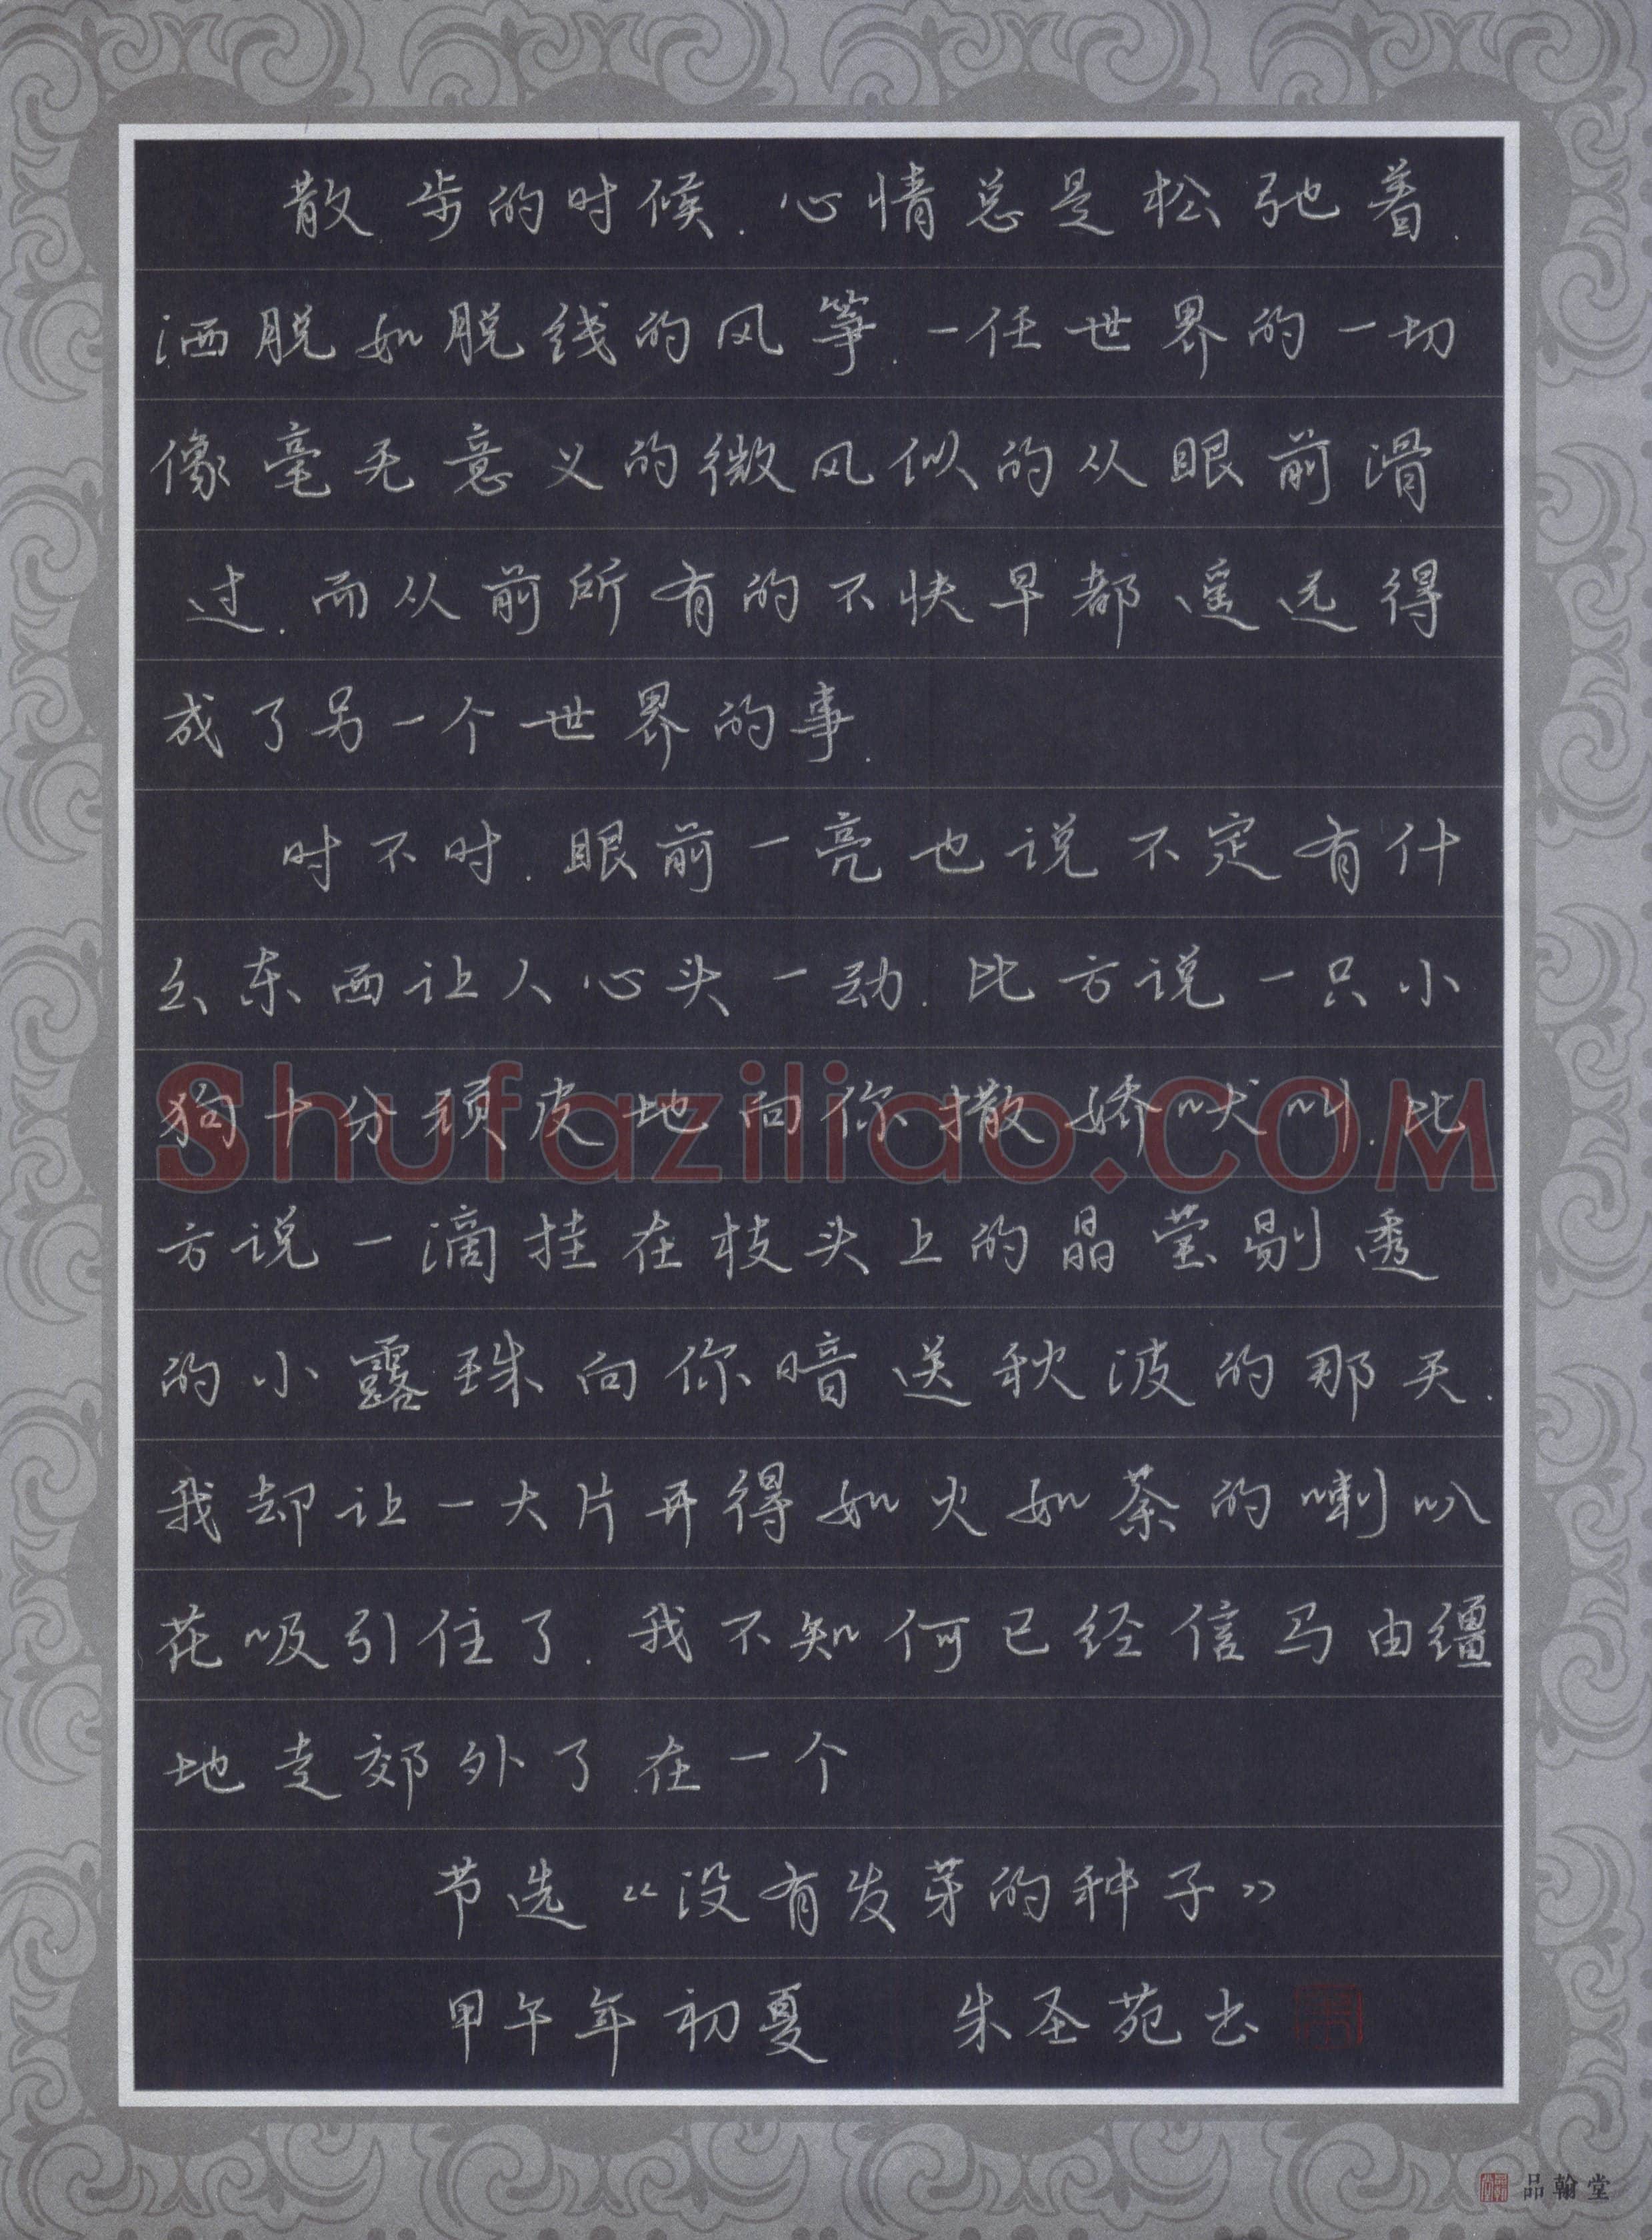 散步的时候.心情总是松弛着.
洒脱如脱线的风筝.一任世界的一切
像毫无意义的微风似的从眼前滑
过.而从前所有的不快早都遥远得
成了另一个世界的事.
时不时.眼前一亮也说不定有什
么东西让人心头一动.比方说一只小
狗十分顽皮地向你撒娇吠叫.比
方说一滴挂在枝头上的晶莹剔透
的小露珠向你暗送秋波的那天.
我却让一大片开得如火如荼的喇叭
花吸引住了.我不知何已经信马由缰
地走郊外了.在一个
节选《没有发芽的种子》
甲午年初夏 朱圣苑书
Shufaziliao.COM
品翰堂